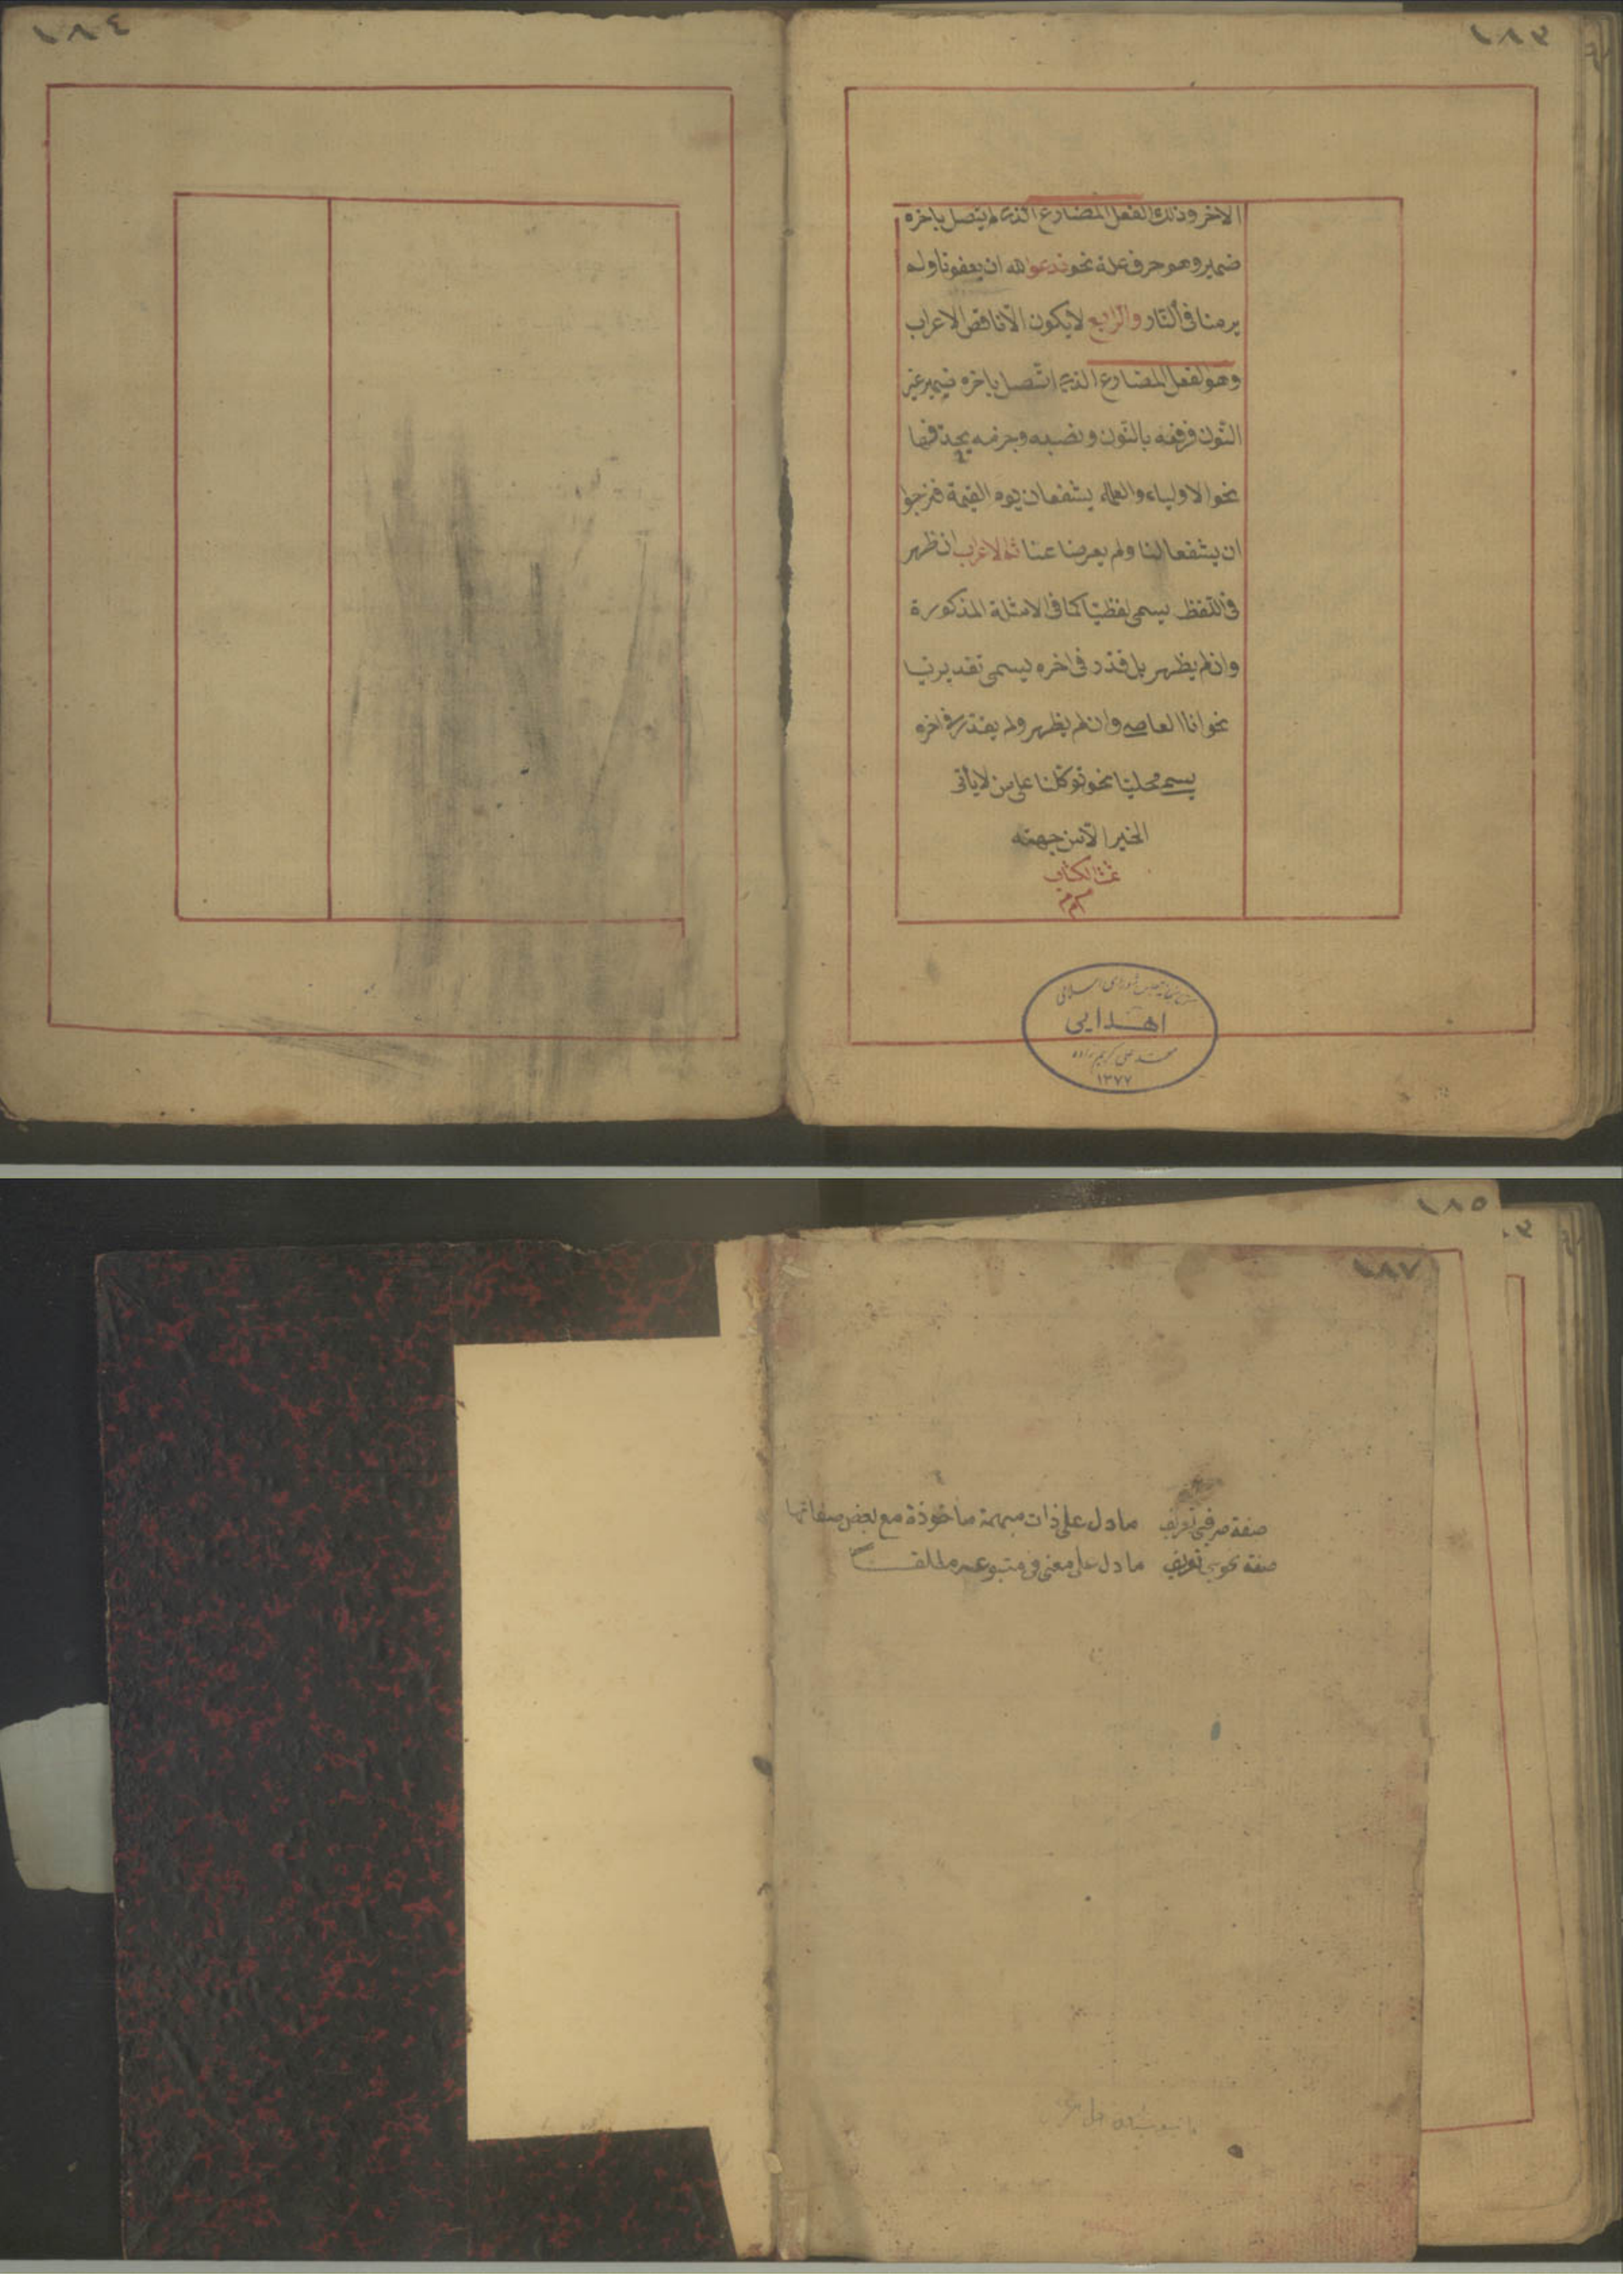 ١٨٣
الاخر وذلك الفعل المضارع الذى لم يتصل باخره
ضمير وهو حرف علة نحو ندعو الله ان يعفونا ولم
يرمنا فى النار والرابع لا يكون الا ناقص الاعراب
وهو الفعل المضارع الذى اتصل باخره ضمير غير
النون فرفعه بالنون ونصبه وجزمه بحذفها
نحو الاولياء والعلماء يشفعان يوم القيمة فنرجوا
ان يشفعا لنا ولم يعرضا عنا ثم الاعراب ان ظهر
فى اللفظ يسمى لفظيّا كما فى الامثلة المذكورة
وان لم يظهر بل قدّر فى اخره يسمى تقديريّا
نحو انا العاصى وان لم يظهر ولم يقدّر فى اخره
يسمى محليّا نحو توكلنا على من لا يأتى
الخير الّا من جهته
تمت الكتاب
م م م
كتابخانه مجلس شوراى اسلامى
اهدایی
محمد على كريم زاده
١٣٧٧
١٨٤
١٨٥
١٨٧
صفة صرفى تعريف ما دل على ذات مبهمة ماخوذة مع بعض صفاتها
صفة نحوى تعريف ما دل على معنى فى متبوعه مطلقا